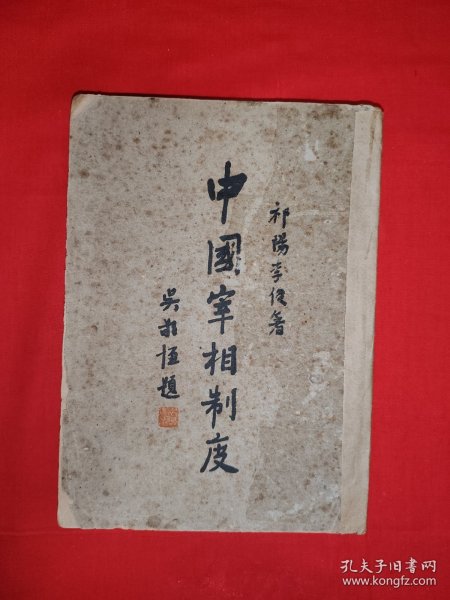 祁陽李俊著
中國宰相制度
吳敬恆題
孔夫子旧书网
www.kongfz.com